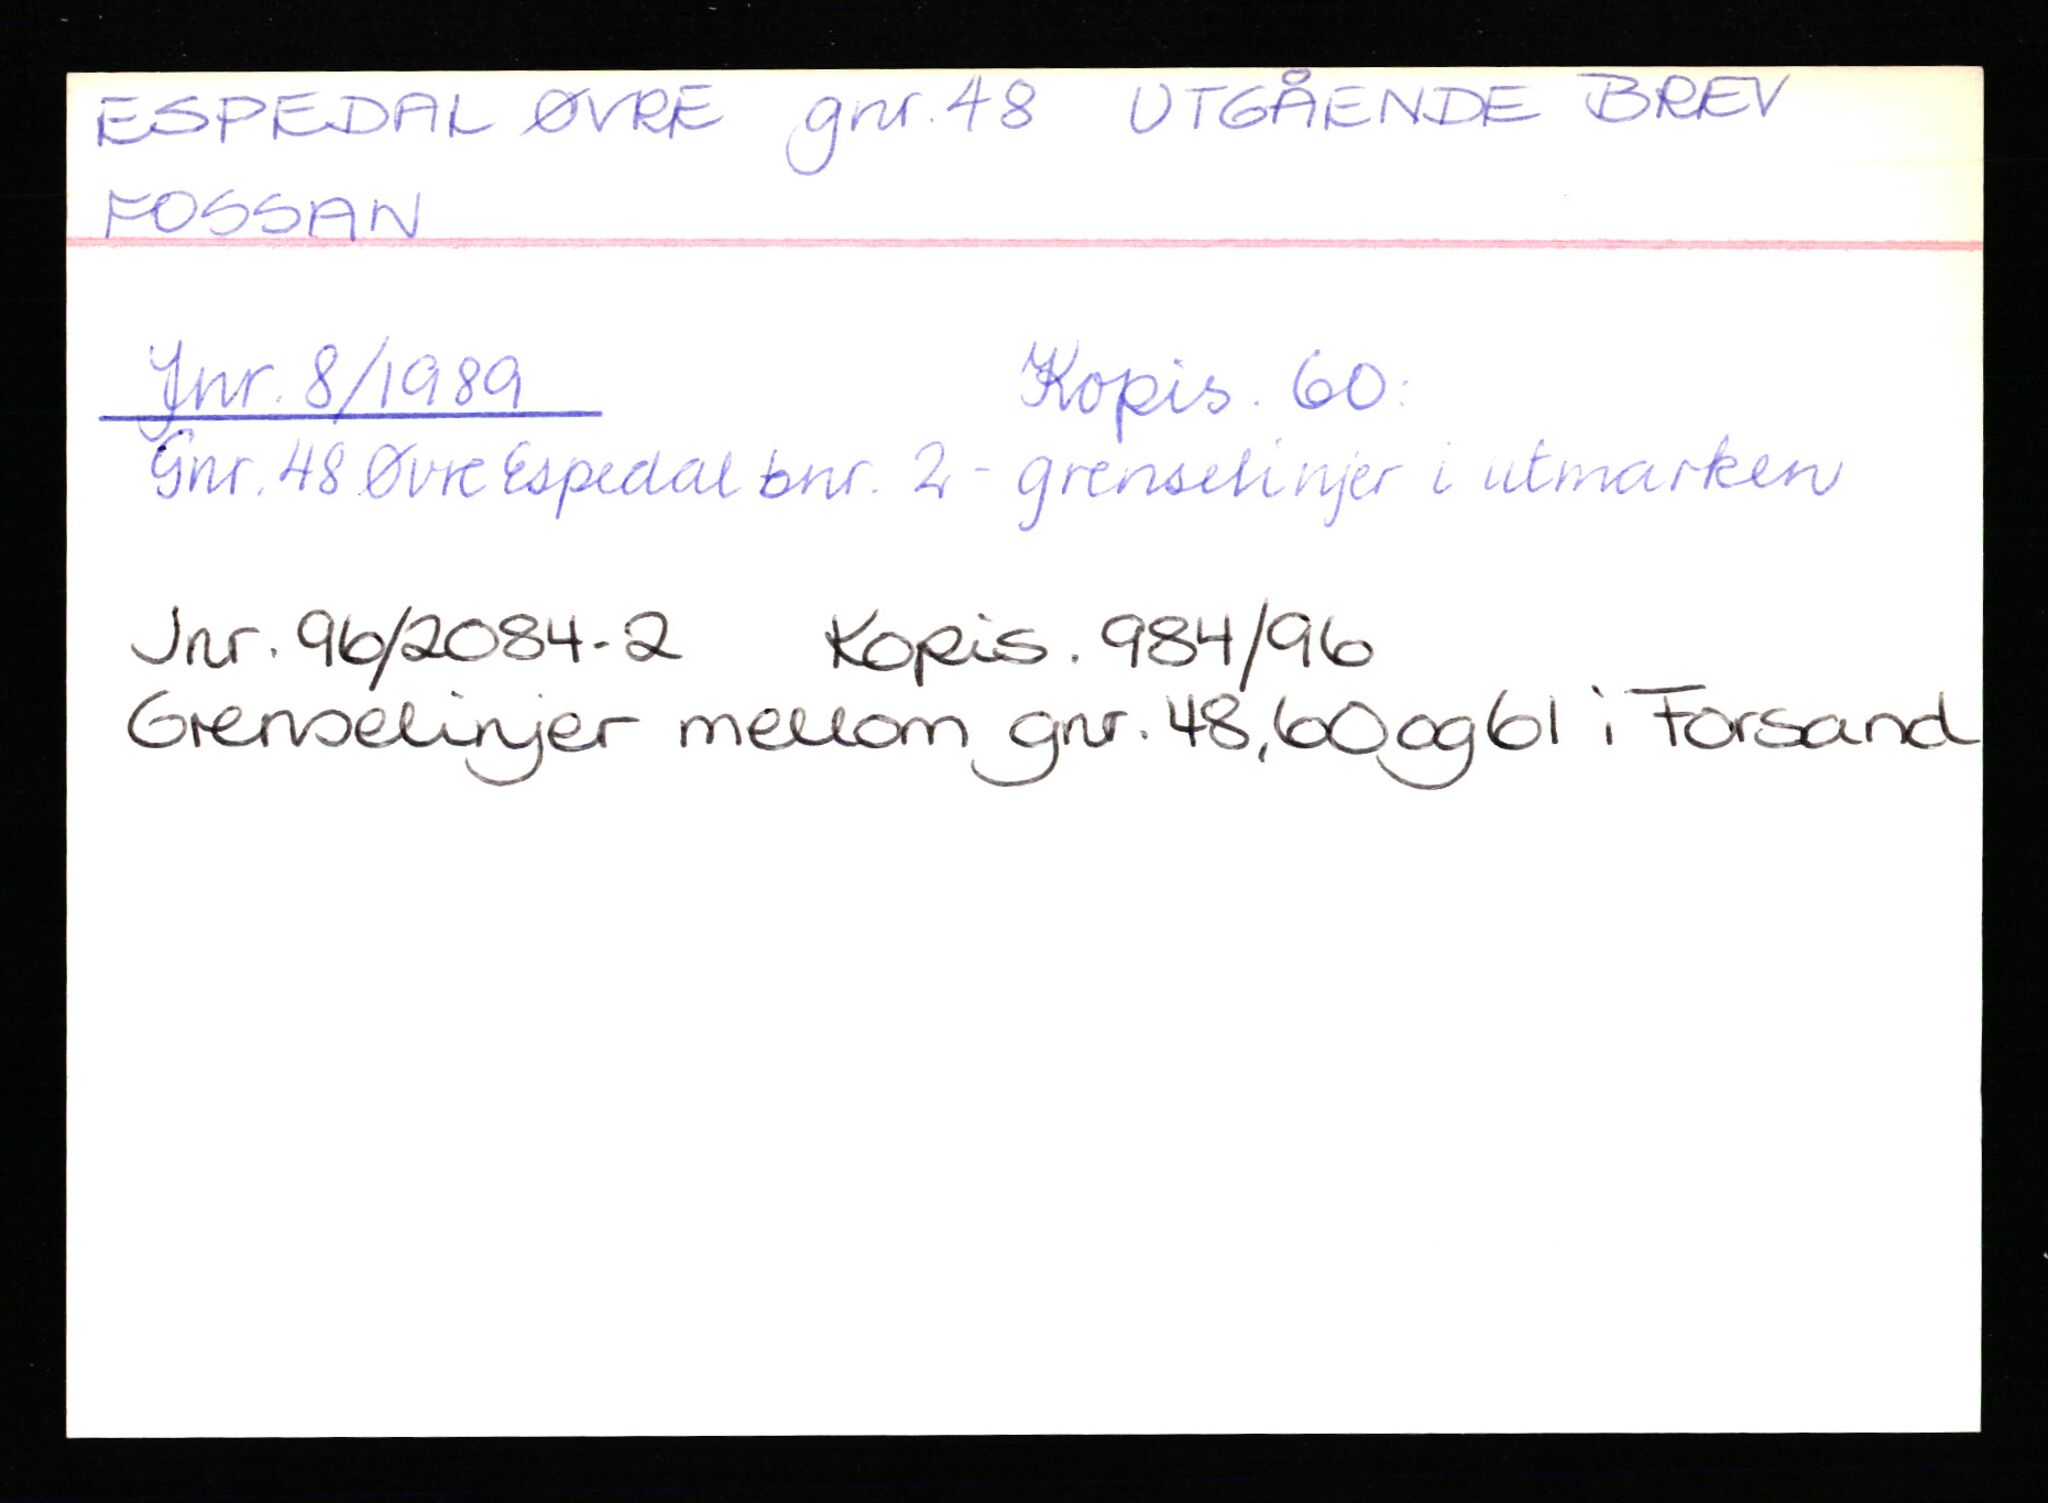 ESPEDAL ØVRE gnr. 48 UTGÅENDE BREV
FOSSAN
Jnr. 8/1989 Kopis. 60:
Gnr. 48 Øvre Espedal bnr. 2 - grenselinjer i utmarken
Jnr. 96/2084-2 Kopis. 984/96
Grenselinjer mellom gnr. 48, 60 og 61 i Forsand